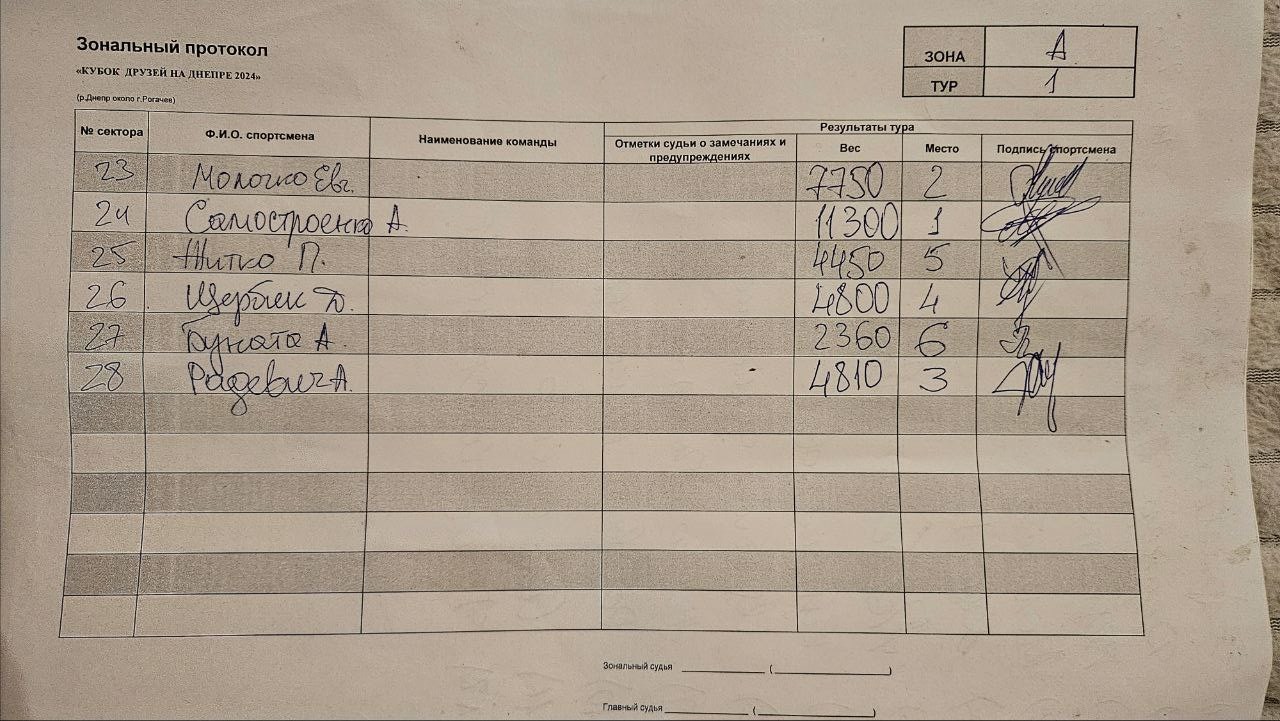 Зональный протокол
«КУБОК ДРУЗЕЙ НА ДНЕПРЕ 2024»
(р.Днепр около г.Рогачев)
ЗОНА А
ТУР 1
№ сектора Ф.И.О. спортсмена Наименование команды Отметки судьи о замечаниях и предупреждениях Результаты тура Вес Место Подпись спортсмена
23 Молочко Евг. 7750 2
24 Самостроенко А. 11300 1
25 Житко П. 4450 5
26 Щербик Д. 4800 4
27 А. 2360 6
28 Радевич А. 4810 3
Зональный судья ____________ (________________)
Главный судья ____________ (________________)